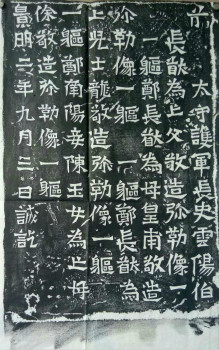 前太守護軍長史雲陽伯
長猷為亡父敬造弥勒像一
一軀鄭長猷為母皇甫敬造
弥勒像一軀鄭長猷為
亡兒士龍敬造弥勒像一軀
一軀鄭南陽妾陳玉女為亡母
徐敬造弥勒像一軀
景明二年九月三日誡訖